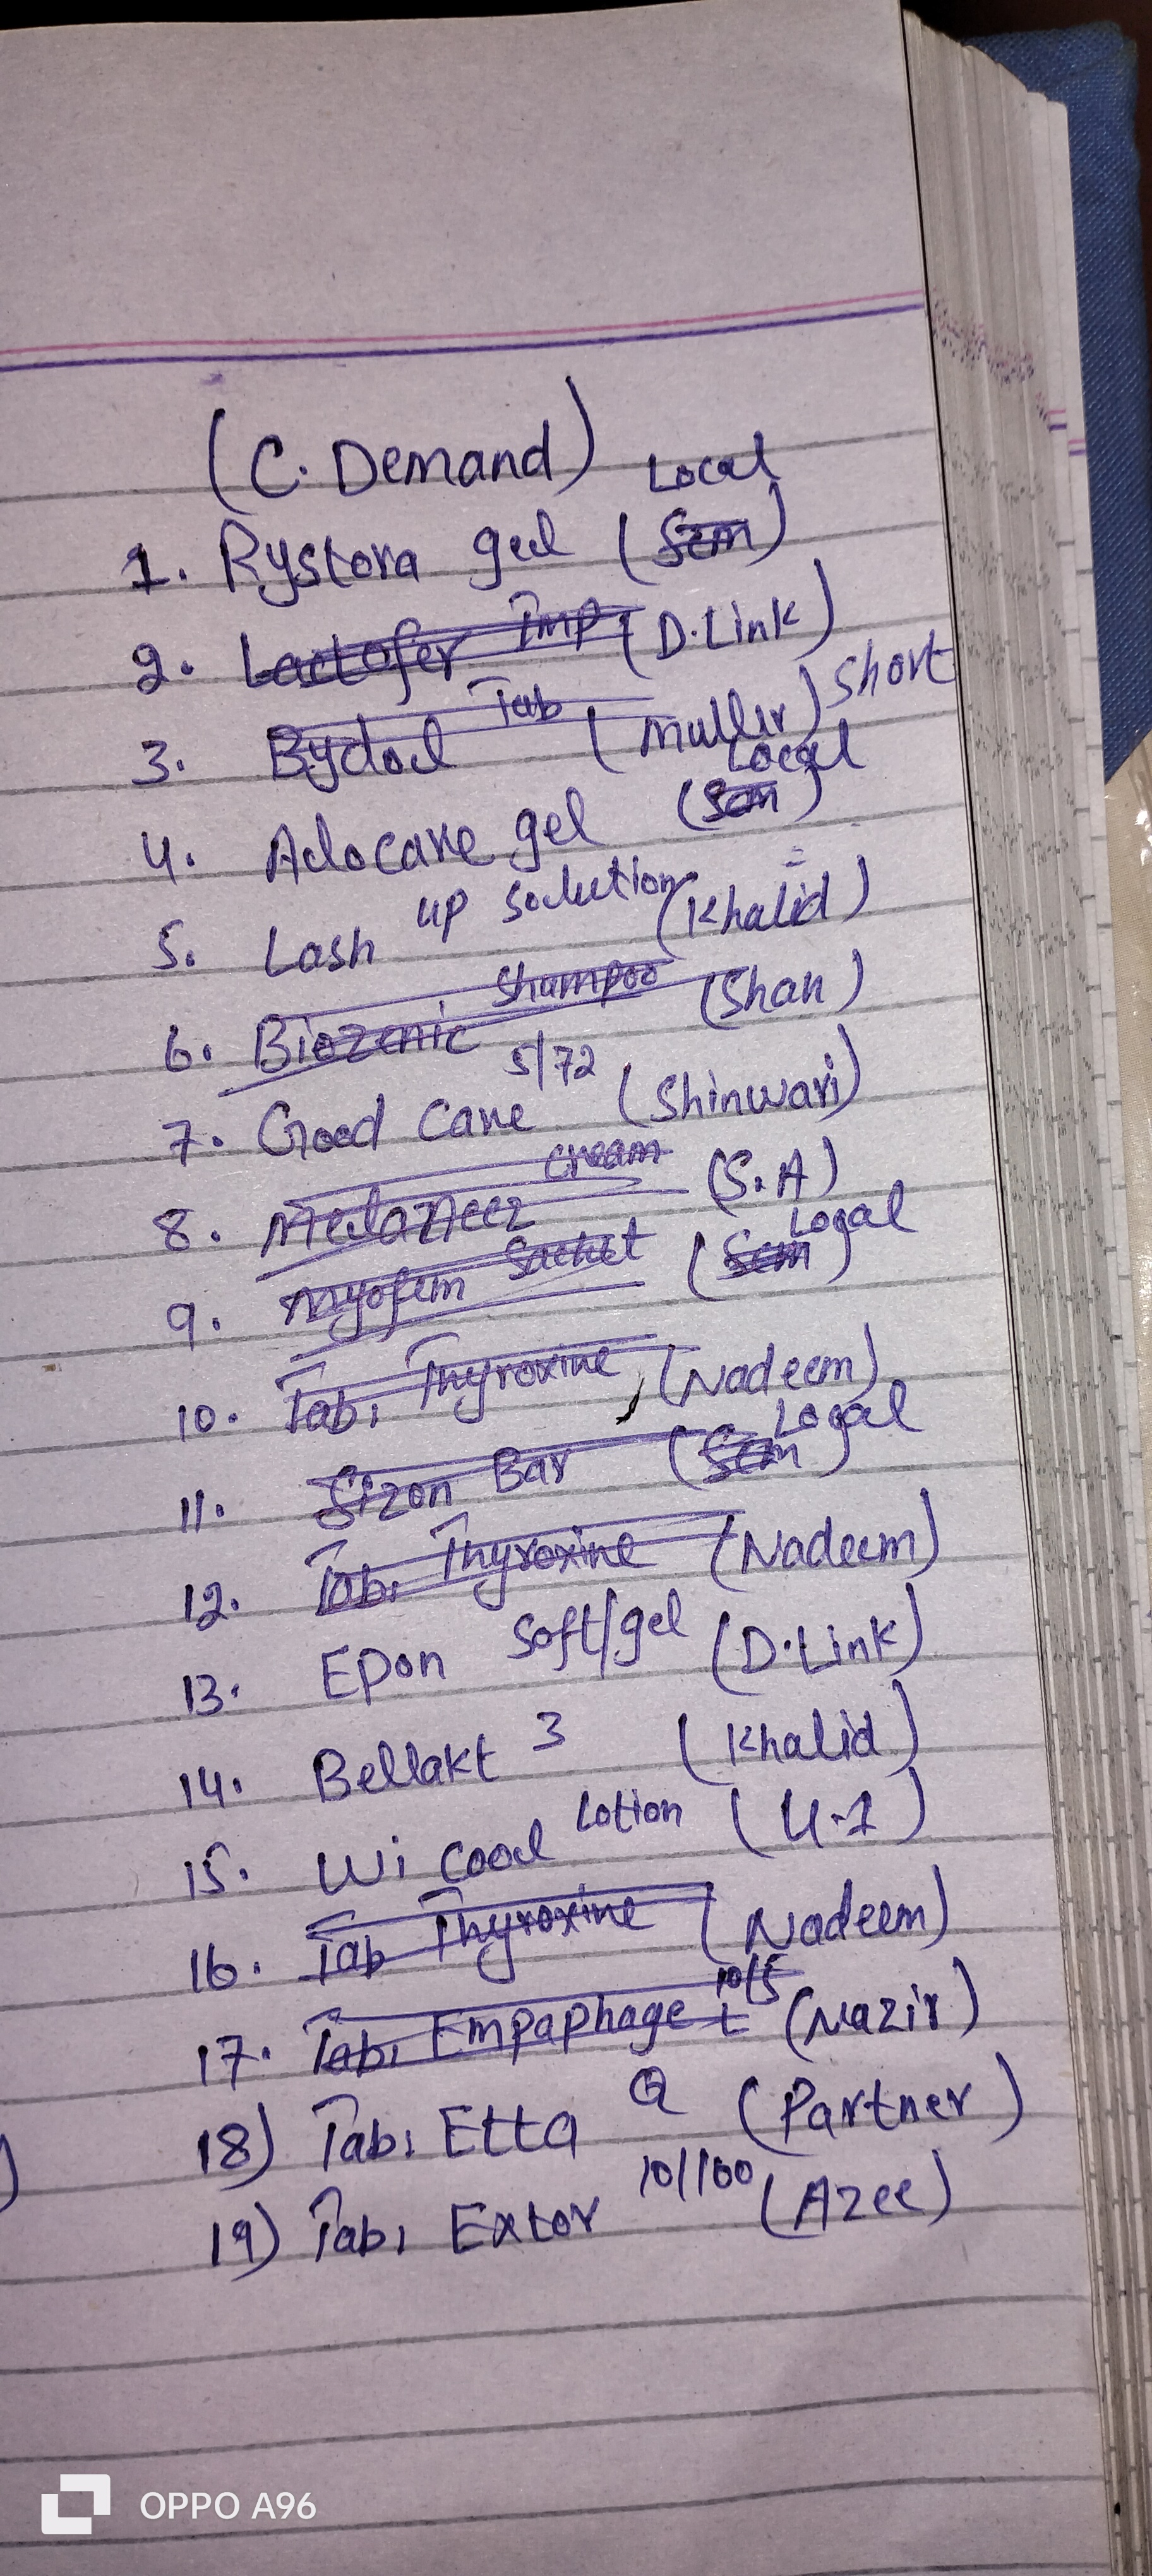 (C. Demand)
1. Rystora gel (Scm) Local
2. Lactofer Tmp (D.Link)
3. Bydol Tab (Muller) Short
4. Adocare gel (Scm) Local
5. Lash up solution (Khalid)
6. Biozenic Shampoo (Shan)
7. Good Care 5/72 (Shinwari)
8. Melaneez cream (S.A)
9. Myofem Sachet (Scm) Local
10. Tab, Thyroxine (Nadeem)
11. Sizon Bar (Scm) Local
12. Tab, Thyroxine (Nadeem)
13. Epon Soft/gel (D.Link)
14. Bellakt 3 (Khalid)
15. Wi Cool Lotion (U-1)
16. Tab Thyroxine (Nadeem)
17. Tab, Empaphage L 10/5 (Nazir)
18) Tab, Etta Q (Partner)
19) Tab, Extor 10/160 (Azee)
OPPO A96